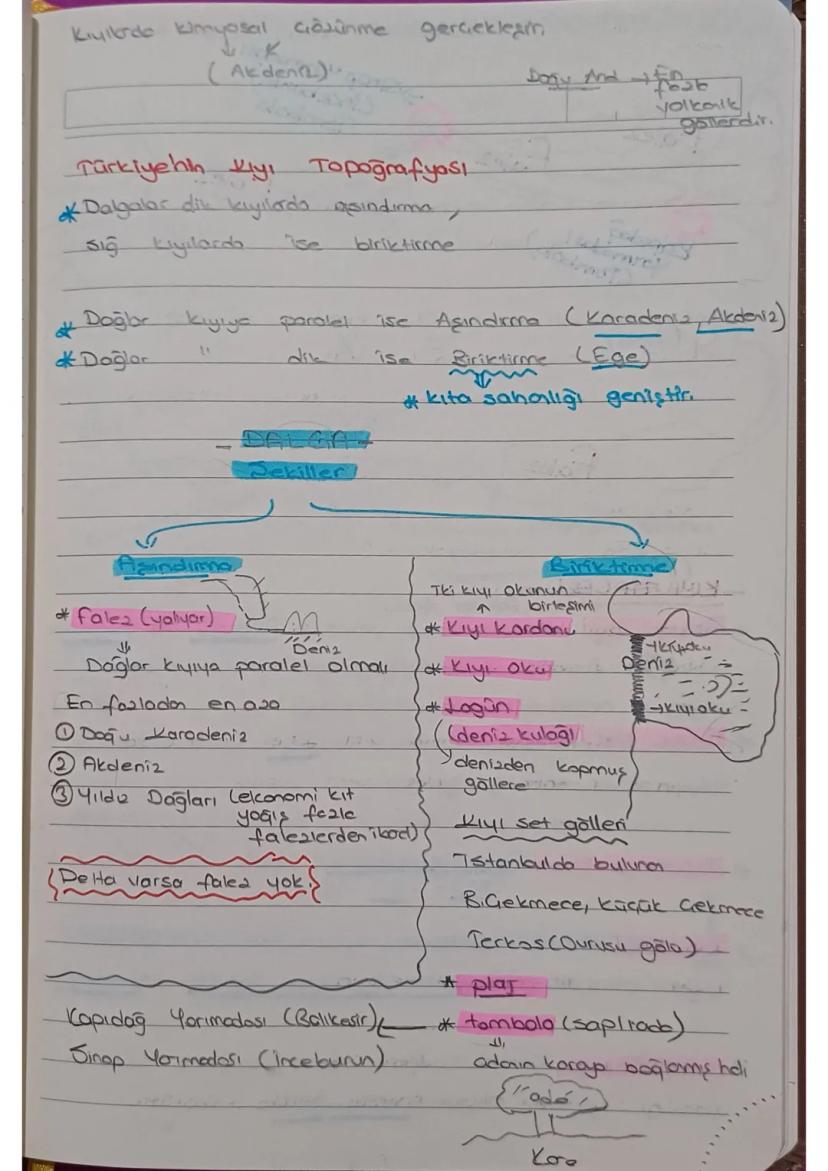 Kıyılarda kimyasal çözünme gerçekleşir.
(Akdeniz)
Doğu And → En
fazla
volkanik
göllerdir.
Türkiye'nin Kıyı Topoğrafyası
* Dalgalar dik kıyılarda aşındırma,
sığ kıyılarda ise biriktirme
* Dağlar kıyıya paralel ise Aşındırma (Karadeniz, Akdeniz)
* Dağlar " dik ise Biriktirme (Ege)
* kıta sahanlığı geniştir.
- DALGA -
Şekiller
Aşındırma
* falez (yalıyar)
Deniz
Dağlar kıyıya paralel olmalı
En fazladan en aza
① Doğu Karadeniz
② Akdeniz
③ Yıldız Dağları (ekonomi kıt
yağış fazla
falezlerden
Delta varsa falez yok!
Biriktirme
İki kıyı okunun
birleşimi
* Kıyı Kordonu
* Kıyı oku
* Lagün
(deniz kulağı)
denizden kopmuş
göllere
→ Kıyıoku
Deniz
→ Kıyıoku
Kıyı set gölleri
İstanbulda bulunan
B.Çekmece, Küçük Çekmece
Terkos (Durusu gölü)
* plaj
* tombolo (saplıada)
adanın karaya bağlanmış hali
Kapıdağ Yarımadası (Balıkesir)
Sinop Yarımadası (İnceburun)
ada
Kara